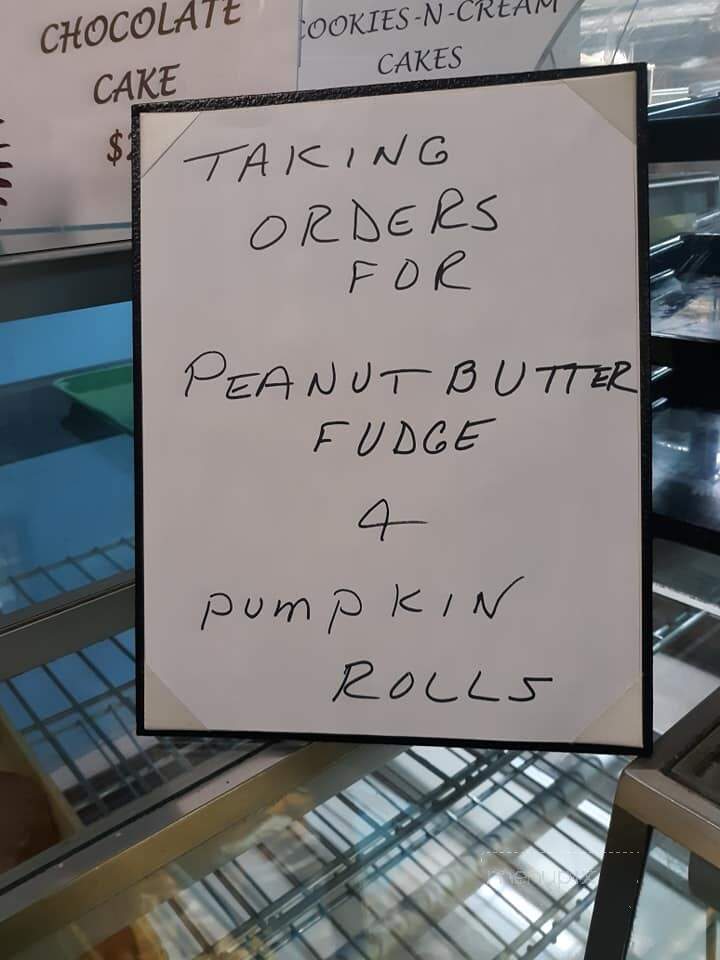 CHOCOLATE
CAKE
COOKIES-N-CREAM
CAKES
TAKING
ORDERS
FOR
PEANUT BUTTER
FUDGE
&
PUMPKIN
ROLLS
menupix